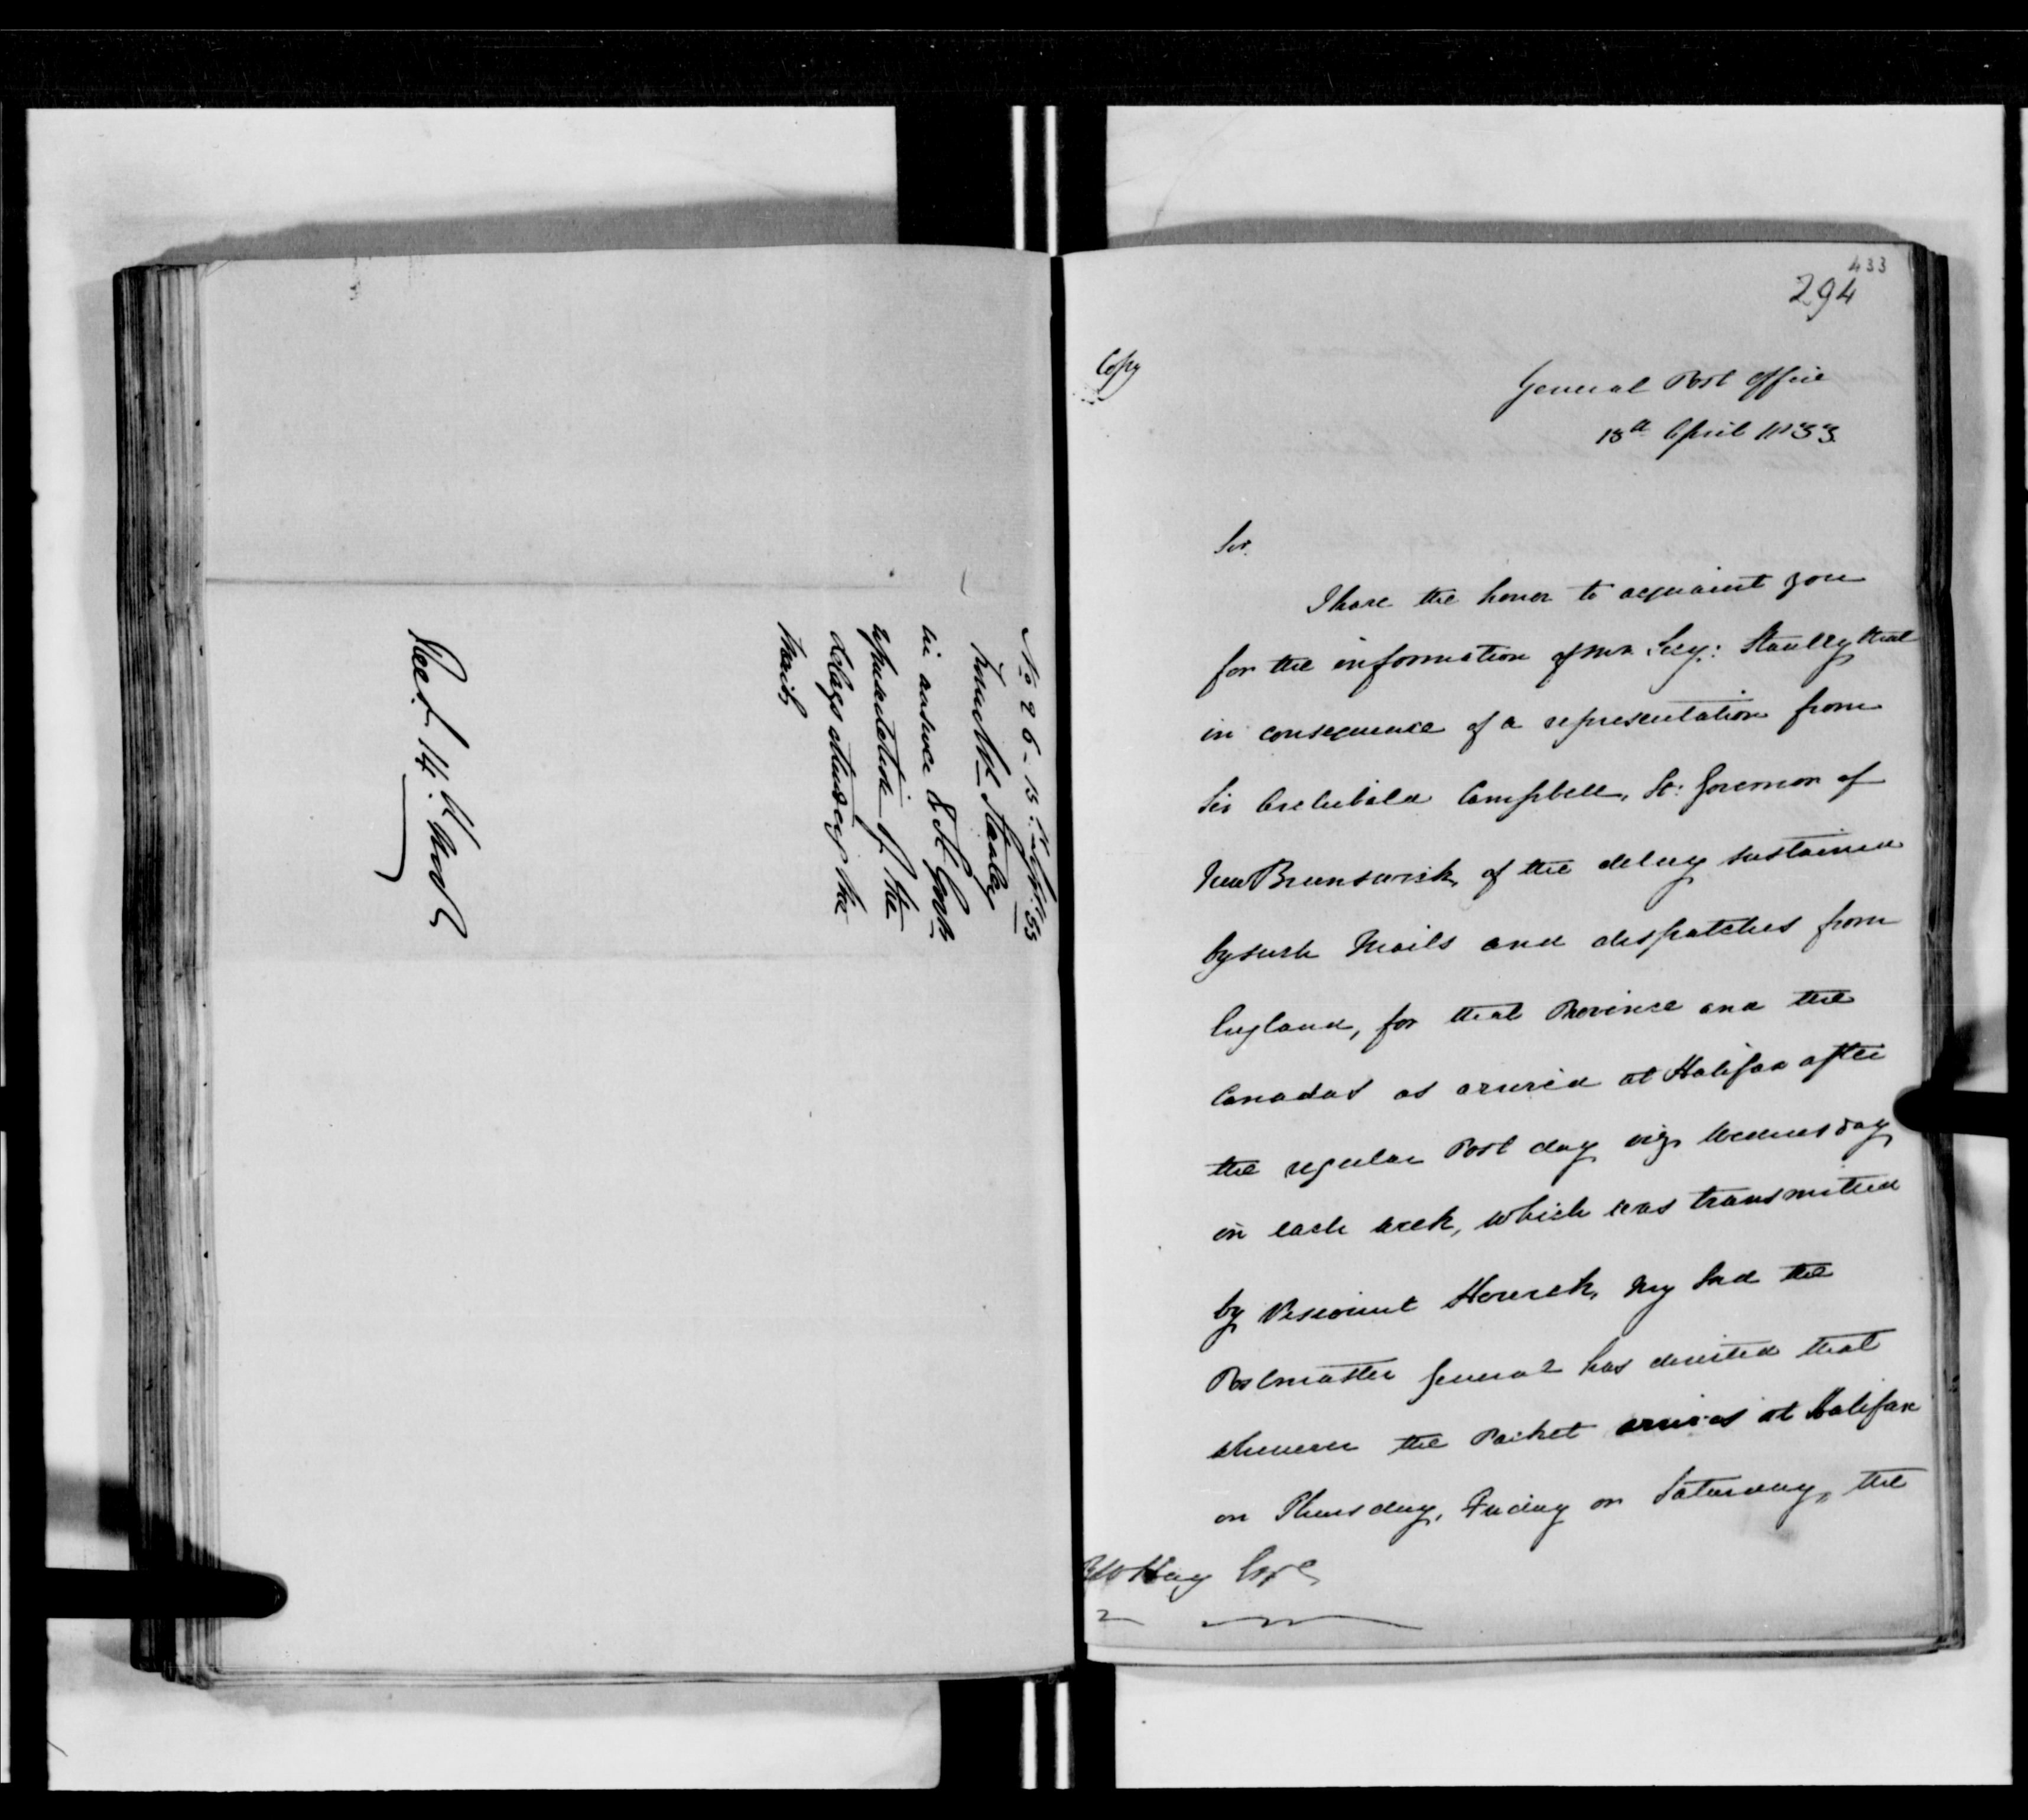 No 26 - 15 Sept. 33
from Mr Stanley
in answer to Lt Govrs
representation of the
delays attending the
Mails
Rec.d 14.th Novr
433
294
Copy
General Post Office
13th April 1833
Sir.
I have the honor to acquaint you
for the information of Mr. Secy: Stanley that
in consequence of a representation from
Sir Archibald Campbell, Lt: Governor of
New Brunswick, of the delay sustained
by such Mails and dispatches from
England, for that Province and the
Canadas as arrived at Halifax after
the regular Post day viz. Wednesday
in each week, which was transmitted
by Viscount Howick, My Lord the
Postmaster General has directed that
whenever the Packet arrives at Halifax
on Thursday, Friday or Saturday, the
R W Hay Esqre